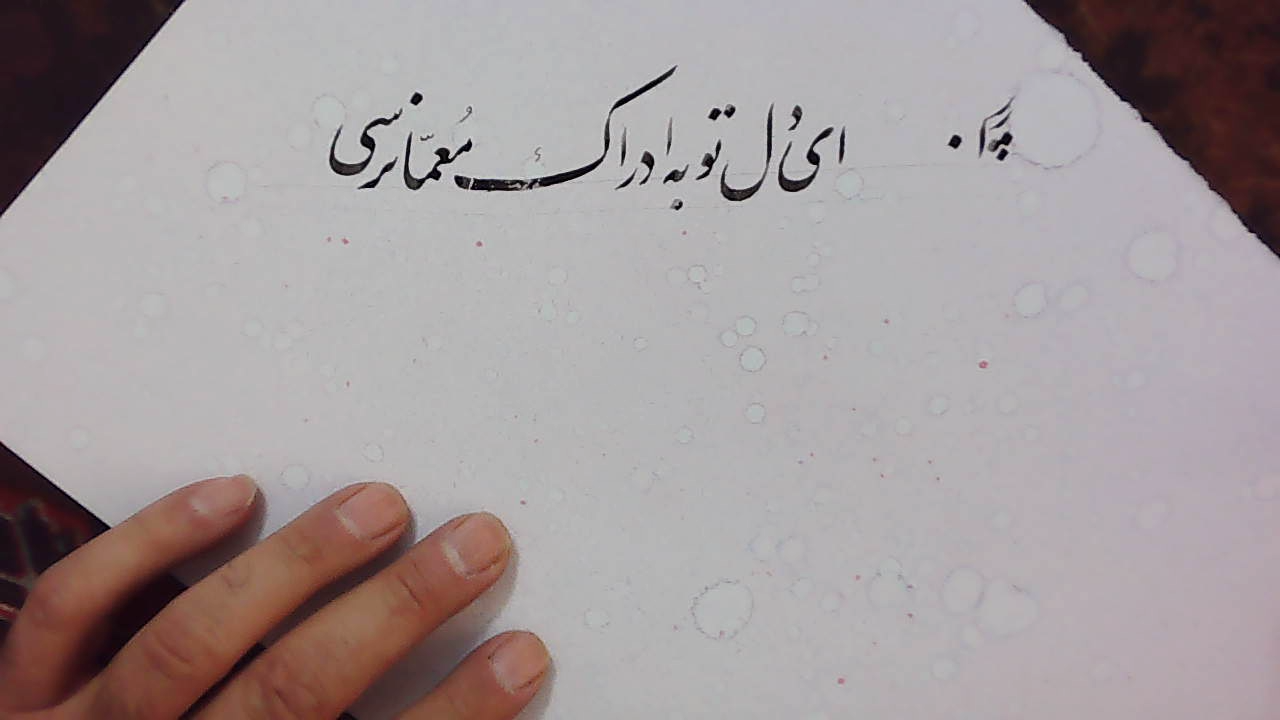 ای دُل تو به ادراک مُعمّا نرسی